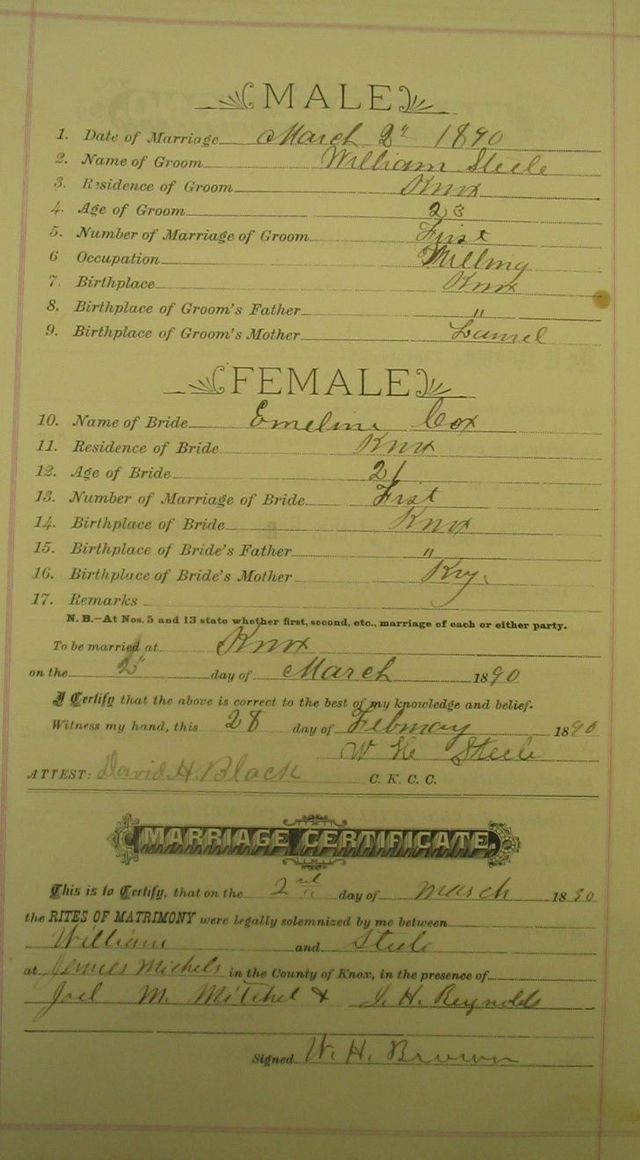 MALE
1. Date of Marriage March 2" 1890
2. Name of Groom William Steele
3. Residence of Groom Knox
4. Age of Groom 23
5. Number of Marriage of Groom First
6 Occupation Milling
7. Birthplace Knox
8. Birthplace of Groom's Father "
9. Birthplace of Groom's Mother Laurel
FEMALE
10. Name of Bride Emeline Cox
11. Residence of Bride Knox
12. Age of Bride 21
13. Number of Marriage of Bride First
14. Birthplace of Bride Knox
15. Birthplace of Bride's Father "
16. Birthplace of Bride's Mother Ky.
17. Remarks
N. B.—At Nos. 5 and 13 state whether first, second, etc., marriage of each or either party.
To be married at Knox
on the 2" day of March 1890
I Certify that the above is correct to the best of my knowledge and belief.
Witness my hand, this 28 day of February 1890
W Steele
ATTEST: David H. Black C. K. C. C.
MARRIAGE CERTIFICATE.
This is to Certify, that on the 2nd day of March 1890
the RITES OF MATRIMONY were legally solemnized by me between
William and Steele
at James Michels in the County of Knox, in the presence of
Joel M. Mitchel & J. H. Reynolds
Signed W. H. Brown